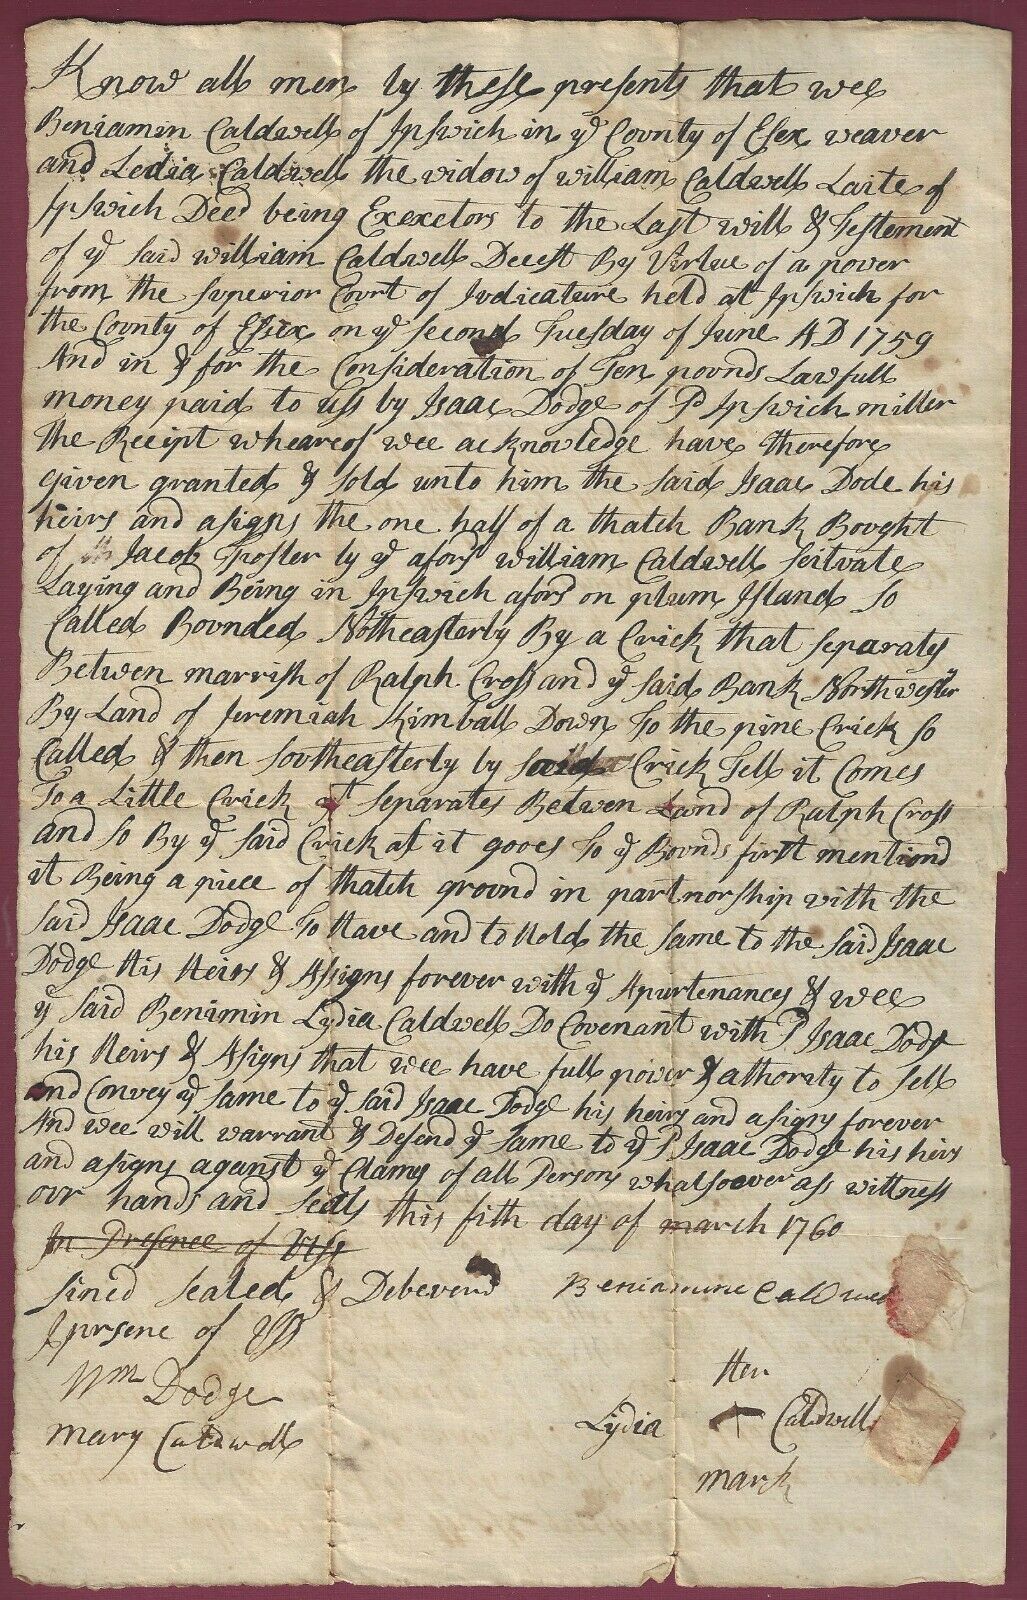 Know all men by these presents that wee
Beniamin Caldwell of Ipswich in ye County of Esex weaver
and Ledia Caldwell the widow of william Caldwell Laite of
Ipswich Deed being Exexetors to the Last will & Testement
of ye said william Caldwell Decest By Virtue of a pover
from the Superior Court of Judicature held at Ipswich for
the County of Essex on ye second Tuesday of June AD 1759
And in & for the Consideration of Ten pounds Lawfull
money paid to uss by Isaac Dodge of sd Ipswich miller
the Receipt wheareof wee acknowledge have therefore
given granted & sold unto him the said Isaac Dode his
heirs and asigns the one half of a thatch Bank Bought
of Jacob Foster by ye afors william Caldwell Seitvate
Laying and Being in Ipswich afors on plum Island so
Called Bounded Notheasterly By a Crick that separates
Betwen marrish of Ralph Cross and ye said Bank Northwester
By Land of Jeremiah Kimball Down To the pine Crick so
Called & then Sootheasterly by said Crick Tell it Comes
To a Little Crick yt separates Betwen Land of Ralph Cross
and so By ye said Crick as it gooes To ye Bounds first mentiond
it Being a piece of thatch ground in partnorship with the
said Isaac Dodge To Have and to Hold the same to the said Isaac
Dodge His Heirs & Assigns forever with ye Apurtenances & wee
ye said Benimin Lydia Caldwell Do Covenant with sd Isaac Dodge
his Heirs & Asigns that wee have full power & athoraty to sell
and Convey ye same to ye said Isaac Dodge his heirs and asigns forever
And wee will warrant & Defend ye same to ye sd Isaac Dodge his heirs
and asigns against ye Clames of all Persons whatsoever ass wittness
our hands and seals this fith day of march 1760
In Presence of Uss
sined sealed & Debeverd Beniamine Caldwell
I prsene of uss
Wm Dodge
Her
Mary Caldwell Lydia Caldwell
mark